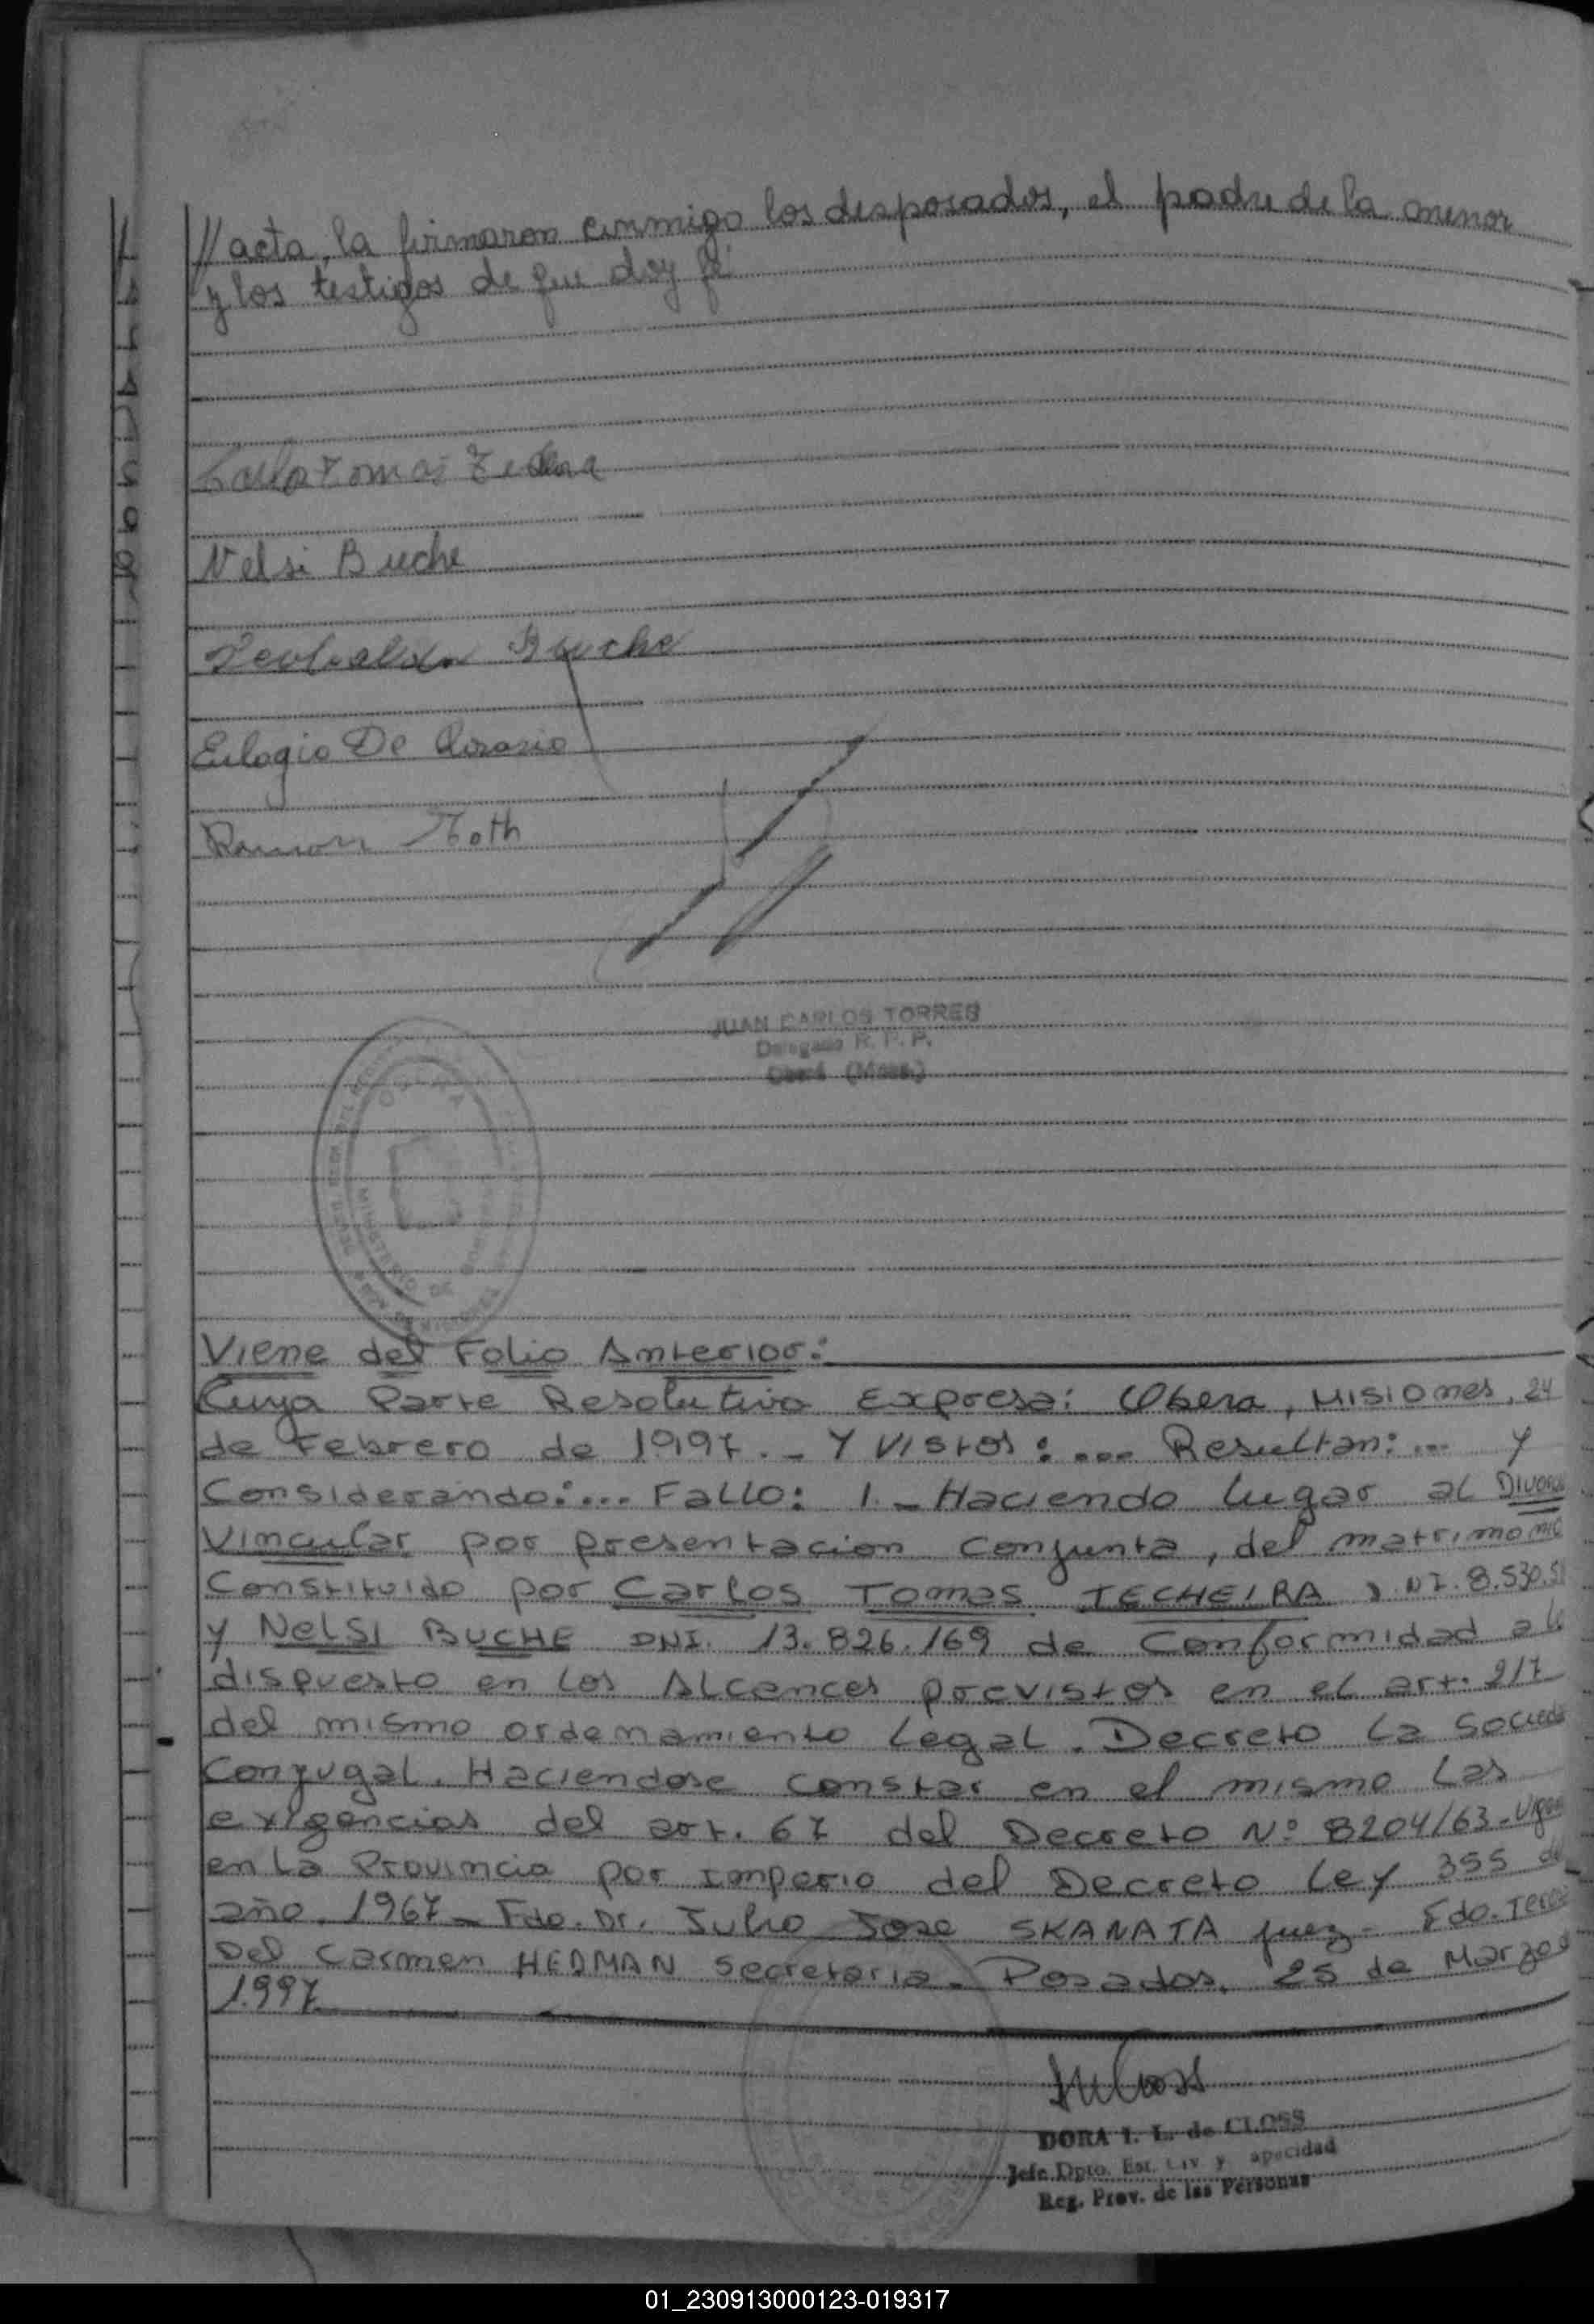 // acta, la firmaron conmigo los desposados, el padre de la menor
y los testigos de que doy fé
Carlos Tomas
Nelsi Buche
Teobaldo Buche
Eulogio De Rosario
Ramon Toth
JUAN CARLOS TORRES
Delegado R. P. P.
Oberá (Mnes.)
MINISTERIO DE
Viene del Folio Anterior:
Cuya Parte Resolutiva Expresa: Obera, Misiones, 24
de Febrero de 1997.- Y Vistos:... Resultan:... Y
Considerando:... FaLLO: 1.- Haciendo lugar al Divorcio
Vincular por presentacion conjunta, del matrimonio
Constituido por Carlos Tomas TECHEIRA D.NI. 8.530.5
y NeLSI BUCHE DNI. 13.826.169 de Conformidad a lo
dispuesto en los Alcances previstos en el art. 217
del mismo ordenamiento Legal. Decreto la Socieda
Conyugal. Haciendose constar en el mismo las
exigencias del art. 67 del Decreto Nº 8204/63-Vigen
en La Provincia por Imperio del Decreto Ley 355 del
año, 1967- Fdo. Dr. Julio Jose SKANATA juez- Fdo. Teresa
Del Carmen HEDMAN Secretaria- Posadas, 25 de Marzo d
1.997
DORA I. L. de CLOSS
Jefe Dpto. Est. Civ. y apacidad
Reg. Prov. de las Personas
01_230913000123-019317